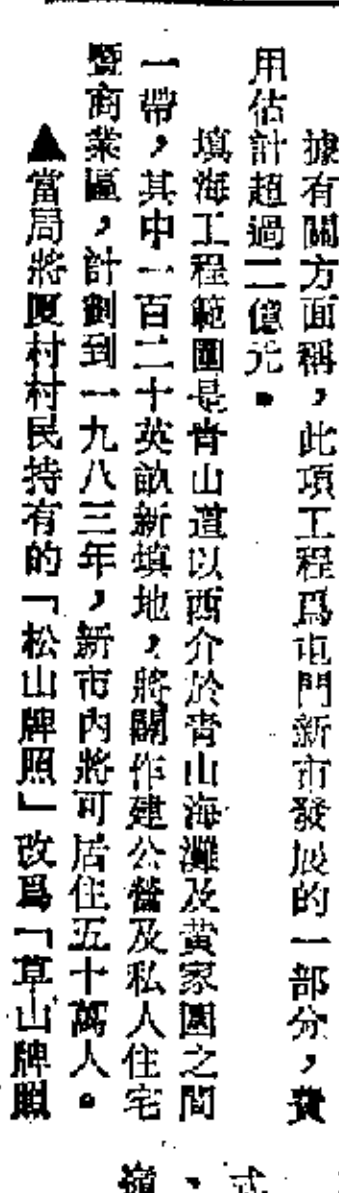 據有關方面稱，此項工程爲屯門新市發展的一部分，費
用估計超過二億元。
填海工程範圍是青山道以西介於青山海灘及黃家圍之間
一帶，其中一百二十英畝新填地，將闢作建公營及私人住宅
暨商業區，計劃到一九八三年，新市內將可居住五十萬人。
▲當局將厦村村民持有的「松山牌照」改爲「草山牌照